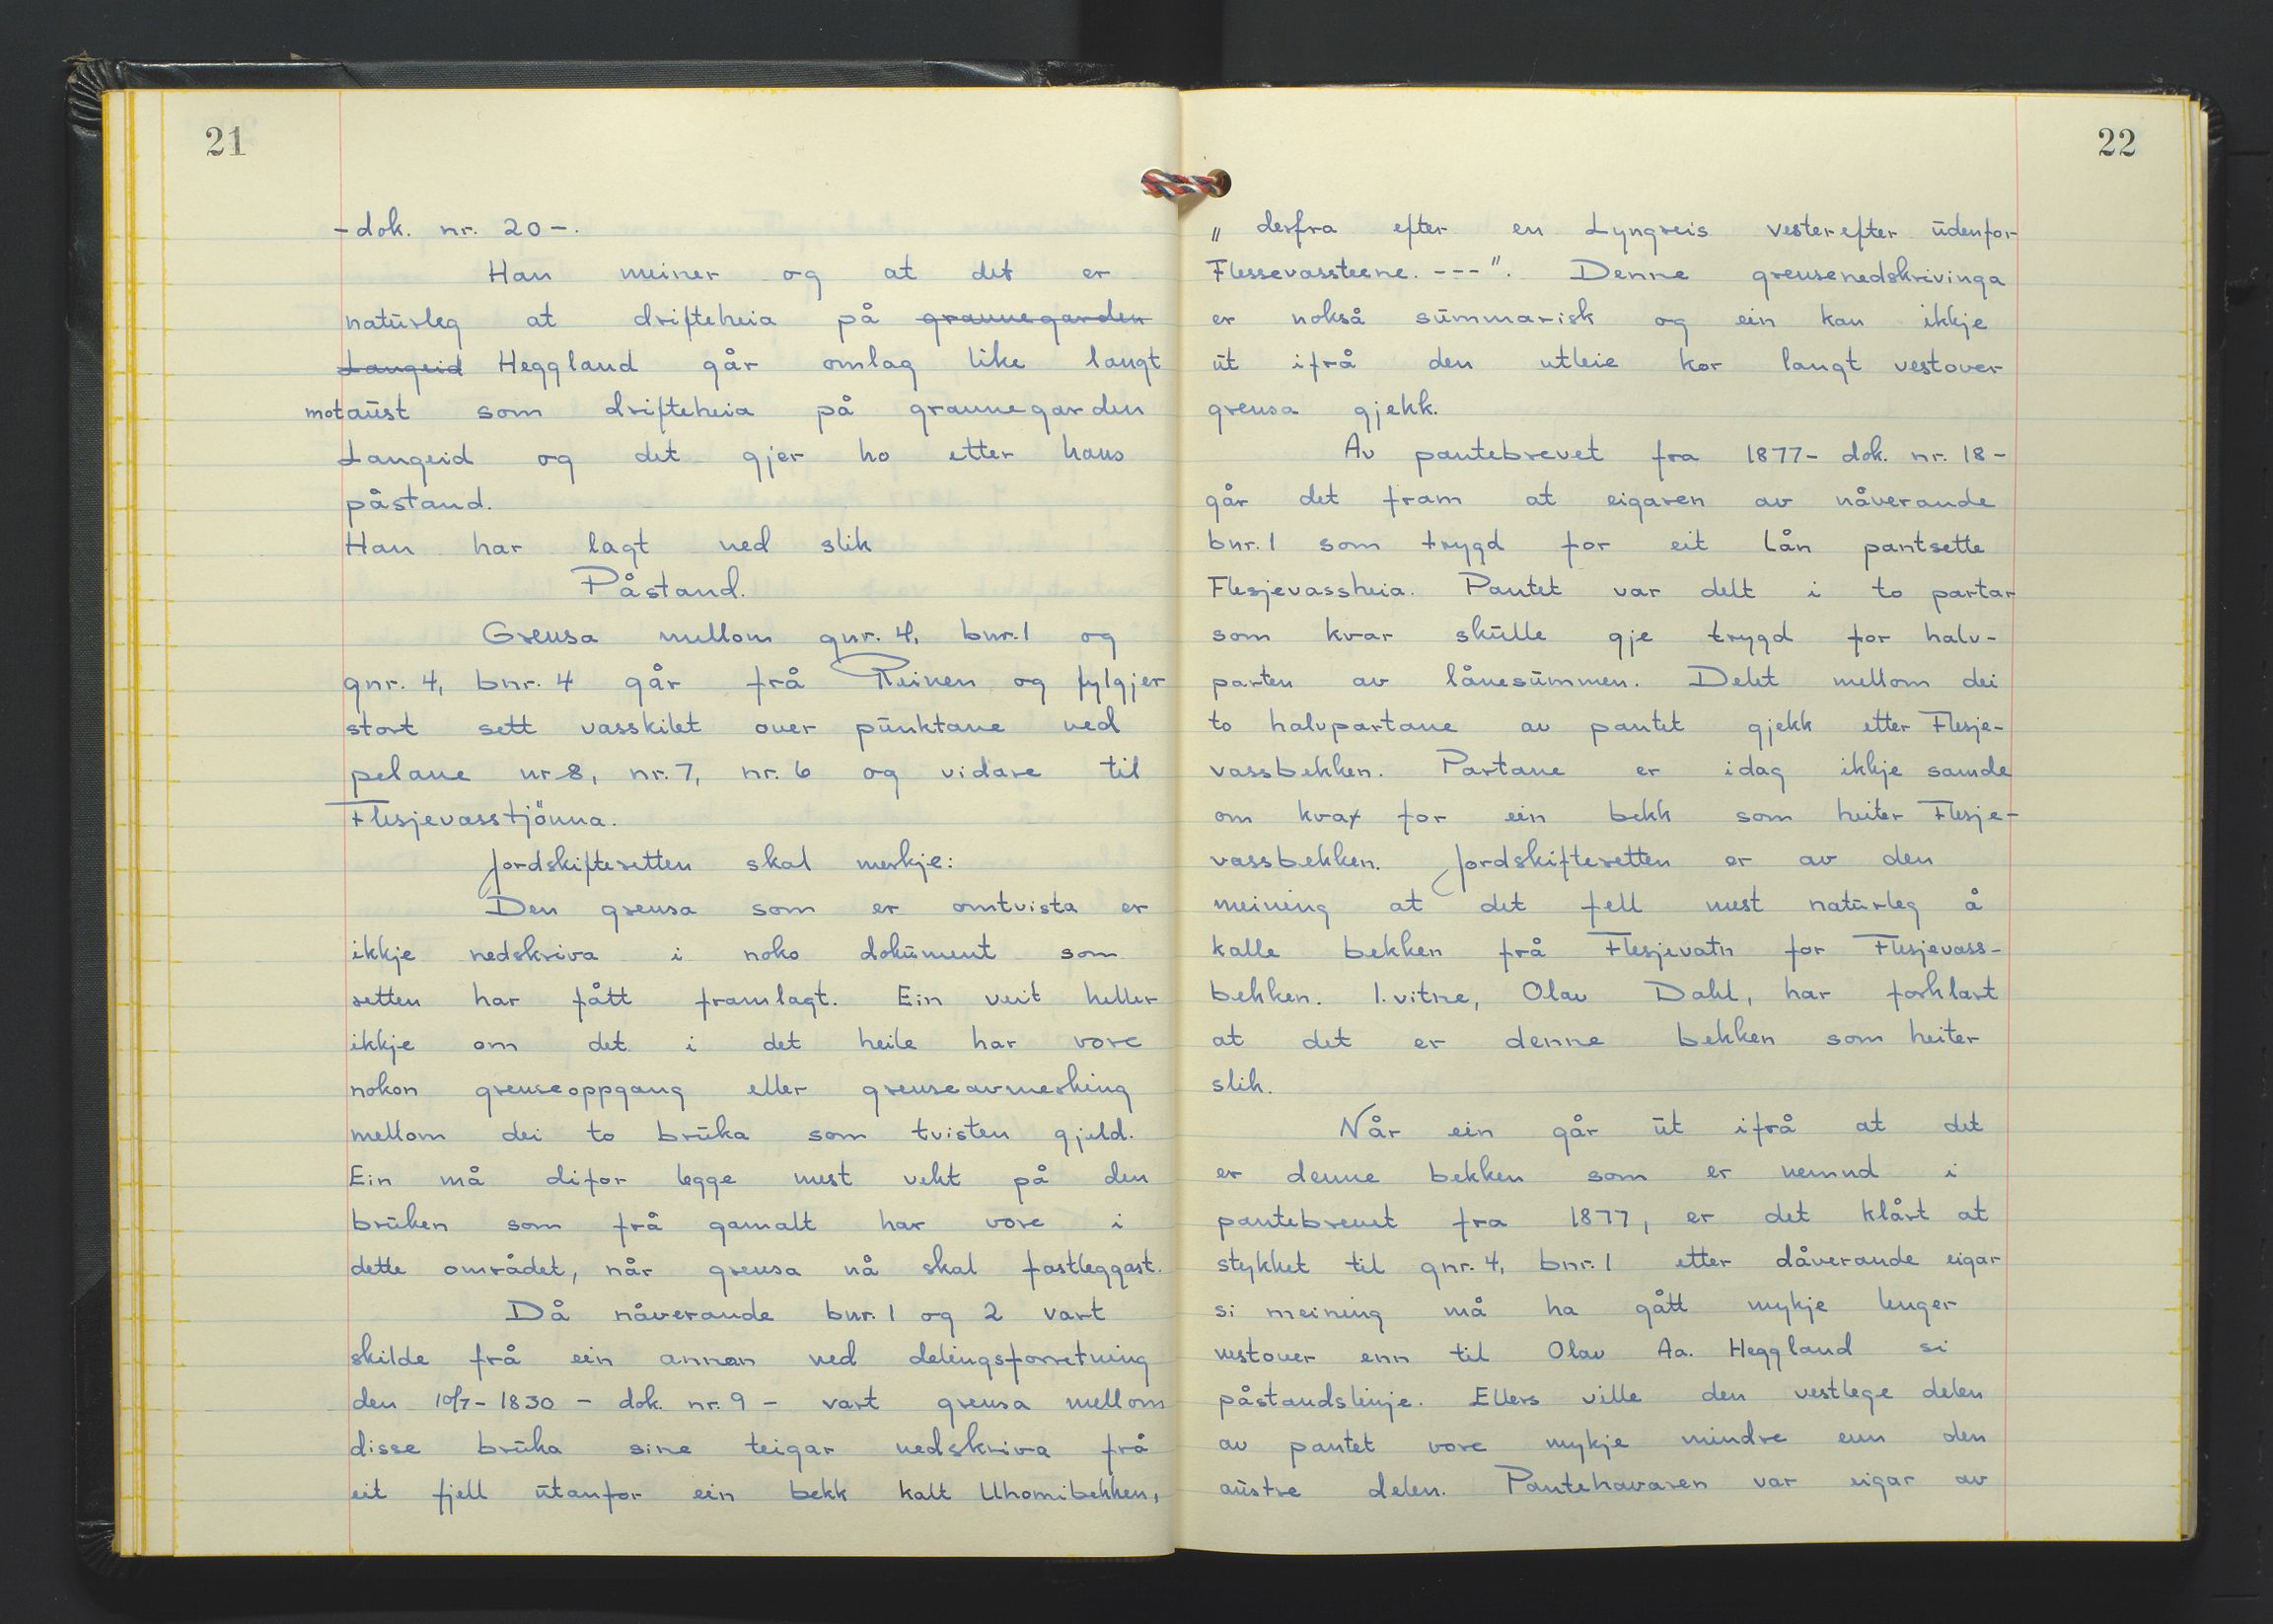 21
-dok. nr. 20-.
Han meiner og at det er
naturleg at drifteheia på grannegarden
Langeid Heggland går omlag like langt
mot aust som drifteheia på grannegarden
Langeid og det gjer ho etter hans
påstand.
Han har lagt ned slik
Påstand.
Grensa mellom gnr. 4, bnr. 1 og
gnr. 4, bnr. 4 går frå Reinen og fylgjer
stort sett vasskilet over punktane ved
pelane nr 8, nr. 7, nr. 6 og vidare til
Flesjevasstjönna.
Jordskifteretten skal merkje:
Den grensa som er omtvista er
ikkje nedskriva i noko dokument som
retten har fått framlagt. Ein veit heller
ikkje om det i det heile har vore
nokon grenseoppgang eller grenseavmerking
mellom dei to bruka som tvisten gjeld.
Ein må difor legge mest vekt på den
bruken som frå gamalt har vore i
dette området, når grensa nå skal fastleggast.
Då nåverande bnr. 1 og 2 vart
skilde frå ein annan ved delingsforretning
den 10/7-1830 - dok. nr. 9 - vart grensa mellom
disse bruka sine teigar nedskriva frå
eit fjell utanfor ein bekk kalt Uhomibekken,
22
„ derfra efter en Lyngreis vesterefter udenfor
Flessevassteene. ---". Denne grensenedskrivinga
er nokså summarisk og ein kan ikkje
ut ifrå den utleie kor langt vestover
grensa gjekk.
Av pantebrevet fra 1877- dok. nr. 18-
går det fram at eigaren av nåverande
bnr. 1 som trygd for eit lån pantsette
Flesjevassheia. Pantet var delt i to partar
som kvar skulle gje trygd for halv-
parten av lånesummen. Delet mellom dei
to halvpartane av pantet gjekk etter Flesje-
vassbekken. Partane er idag ikkje samde
om kva for ein bekk som heiter Flesje-
vassbekken. Jordskifteretten er av den
meining at det fell mest naturleg å
kalle bekken frå Flesjevatn for Flesjevass-
bekken. 1. vitne, Olav Dahl, har forklart
at det er denne bekken som heiter
slik.
Når ein går ut ifrå at det
er denne bekken som er nemnd i
pantebrevet fra 1877, er det klårt at
stykket til gnr. 4, bnr. 1 etter dåverande eigar
si meining må ha gått mykje lenger
vestover enn til Olav Aa. Heggland si
påstandslinje. Ellers ville den vestlege delen
av pantet vore mykje mindre enn den
austre delen. Pantehavaren var eigar av